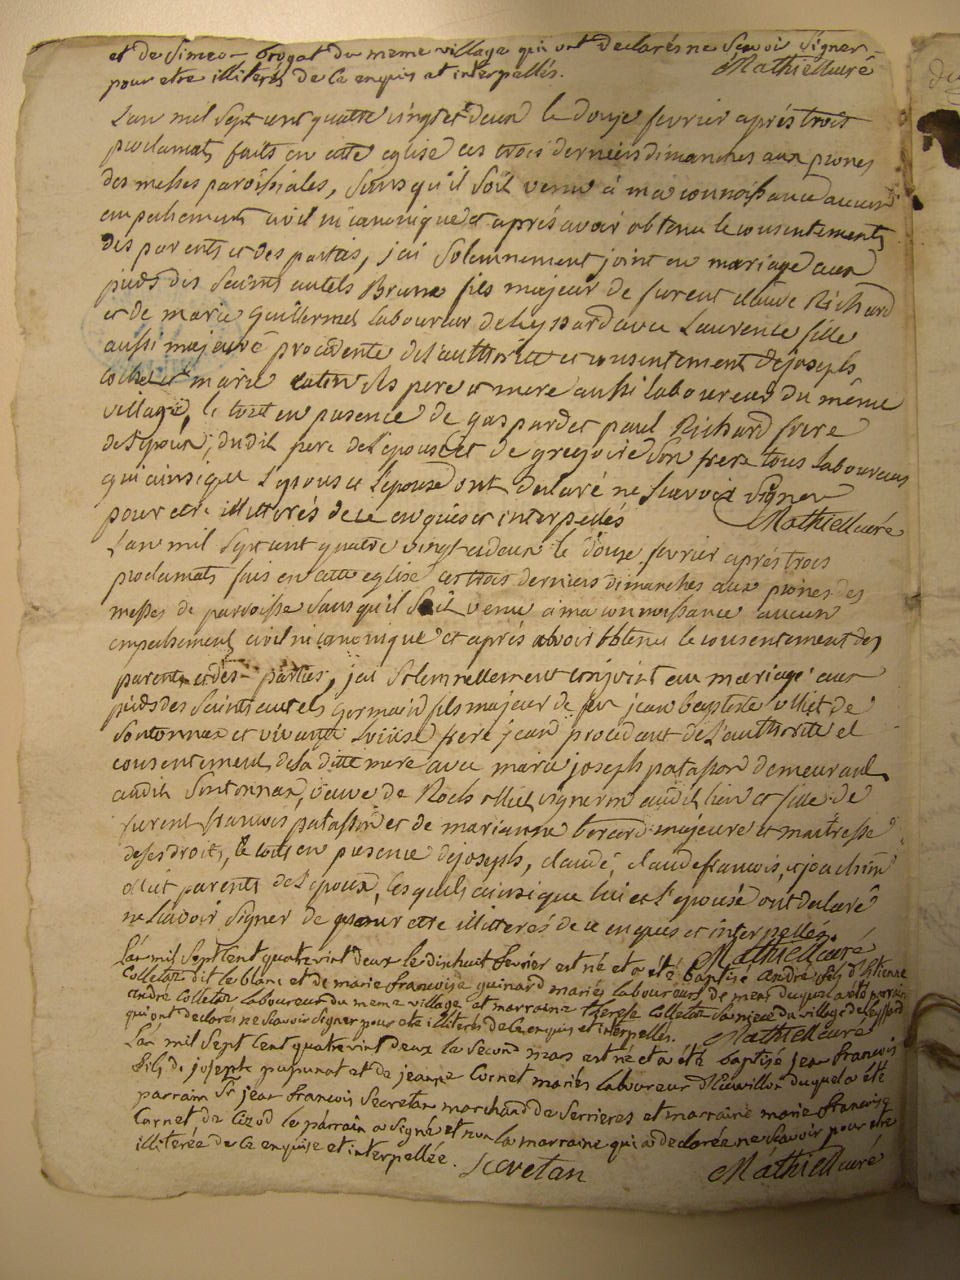 et de Simeon brogat du meme village qui ont declarés ne Scavoir Signer
pour etre illiterés de ce enquis et interpellés. Mathiell curé
L'an mil Sept cent quatre vingt et deux le douze fevrier aprés trois
proclamats faits en cette eglise ces trois derniers dimanches aux prones
des messes paroissiales, Sans qu'il Soit venu à ma connoissance aucun
empechement civil ni canonique et aprés avoir obtenu le consentements
des parents et des parties, j'ai Solemnement joint en mariage aux
pieds des Saints autels Bruno fils majeur de furent claude Richard
et de marie Guillermet laboureur de avec Laurence fille
aussi majeure procedente de l'authorité et consentement de joseph
et marie pere et mere aussi laboureur du même
village, le tout en presence de gaspard et paul Richard frere
de l'epoux, dudit pere de l'epouse et de gregoire Son frere tous laboureurs
qui ainsi que l'epoux et l'epouse ont declaré ne Scavoir Signer
pour etre illitterés de ce enquis et interpellés Mathiell curé
L'an mil Sept cent quatre vingt et deux le douze fevrier aprés trois
proclamats fais en cette eglise ces trois derniers dimanches aux prones des
messes de paroisse Sans qu'il Soit venu a ma connoissance aucun
empechement civil ni canonique et aprés avoir obtenu le consentement des
parents et des parties, j'ai Solemnellement conjoint en mariage aux
pieds des Saints autels Germain fils majeur de feu jean baptiste olliet de
Sontonnax et vivante frere jean procedant de l'authorité et
consentement de Sa ditte mere avec marie joseph patasson demeurant
audit Sontonnax, veuve de Roch olliet vigneron audit lieu et fille de
furent francois patasson et de marianne majeure et maitresse
de Ses droits, le tout en presence de joseph, claude, claude francois, et joachim
olliet parents de l'epoux, lesquels ainsi que lui et l'epouse ont declaré
ne Scavoir Signer de pour etre illitterés de ce enquis et interpellés.
Mathiell curé
L'an mil Sept Cent quatrevint deux le dixhuit fevrier est né et a été Baptisé andré fils d'Etienne
Colletaz dit le blanc et de marie francoise guinard mariés laboureurs de duquel a été parrain
andré Colletaz laboureur du meme village et marraine Therese Colletaz Sa niece du village de
qui ont declarés ne Scavoir Signer pour etre illiterés de ce enquis et interpellés. Mathiell curé
L'an mil Sept Cent quatrevint deux le Second mars est né et a été baptisé jean francois
fils de joseph et de jeanne Cornet mariés laboureur duquel a été
parrain Sr jean francois Secretan marchand de Serrieres et marraine marie francoise
Cornet de Cizod le parrain a Signé et non la marraine qui a declarée ne Scavoir pour etre
illiterée de ce enquise et interpellée. Secretan Mathiell curé